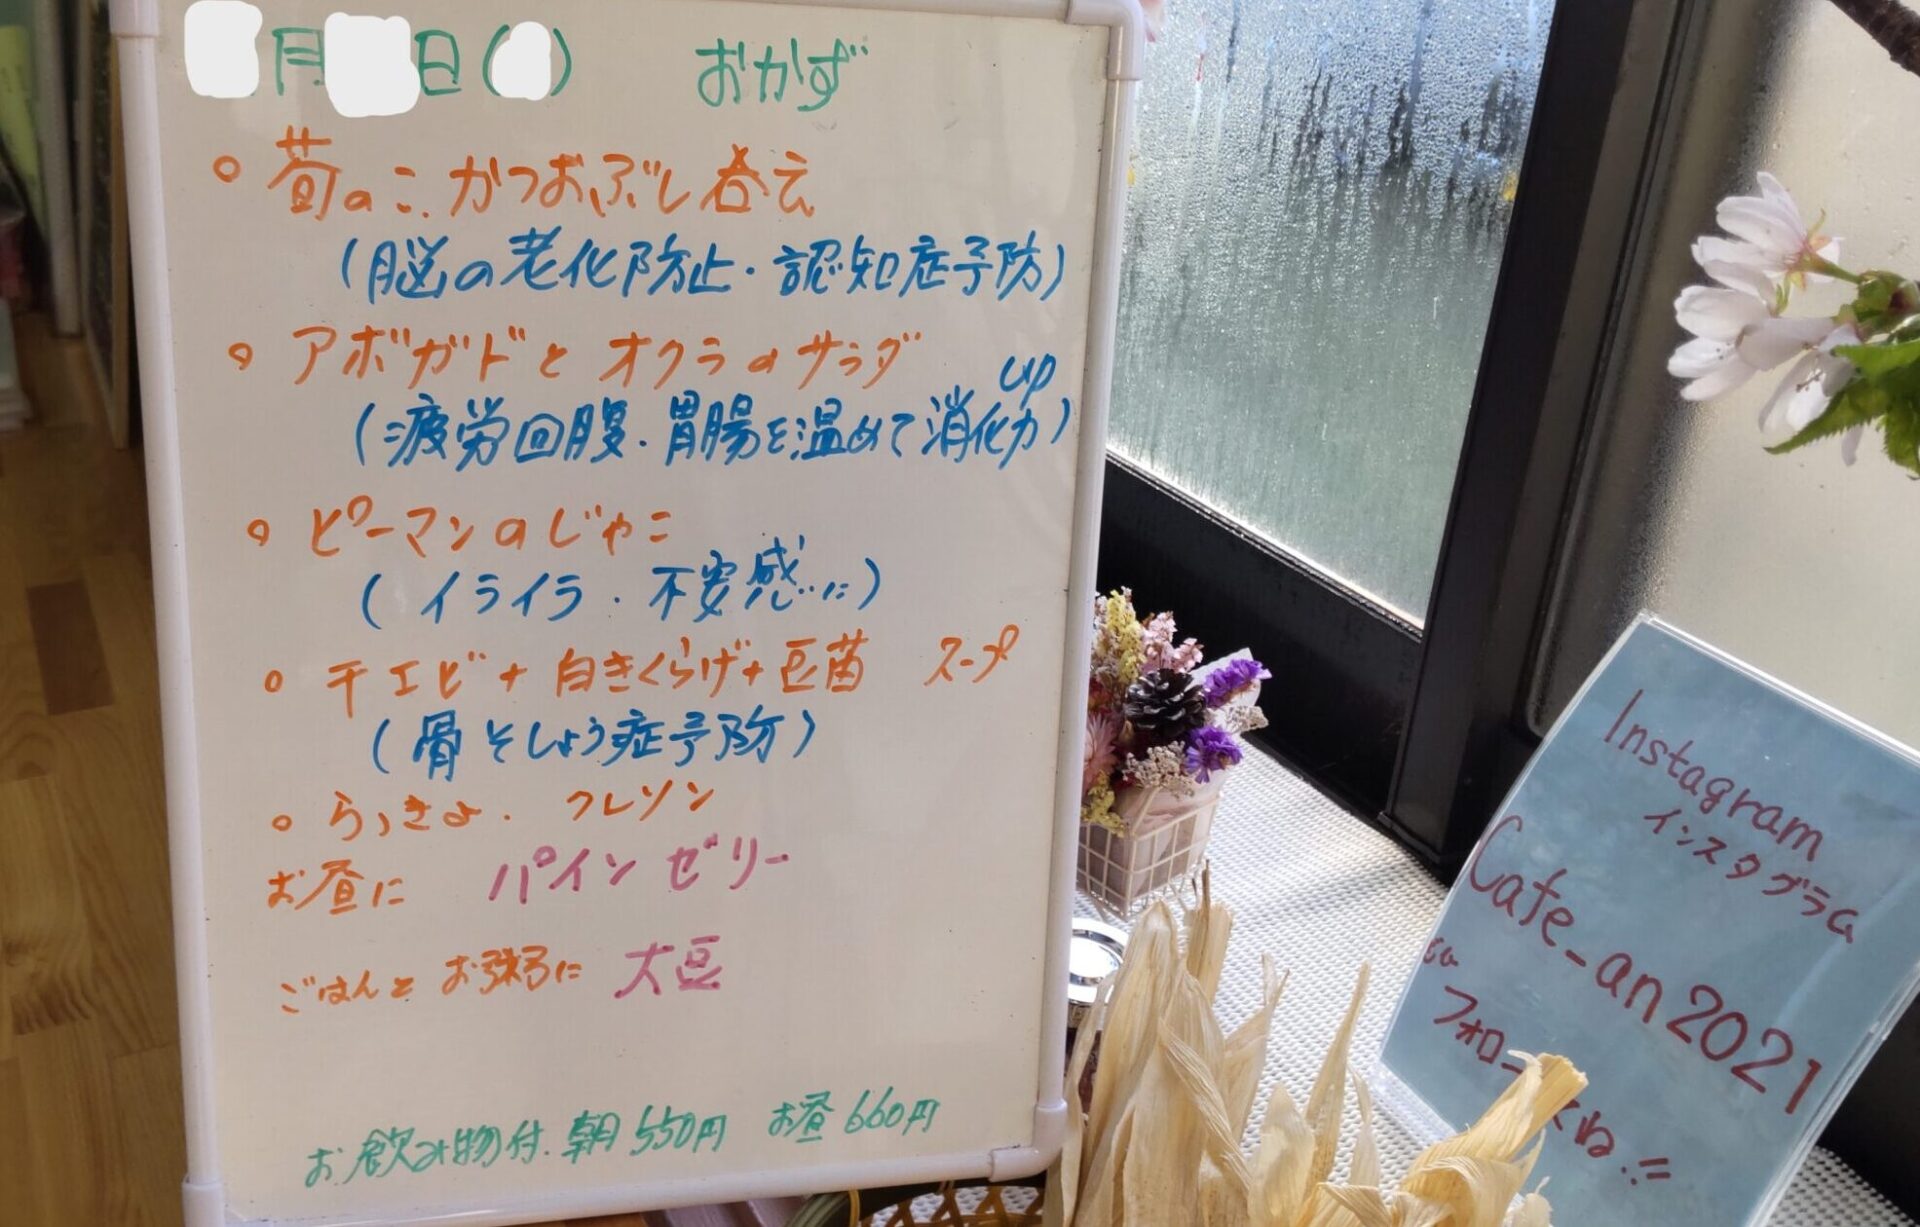 月 日( ) おかず
○ 筍のこ.かつおぶし呑え
(脳の老化防止・認知症予防)
○ アボガドとオクラのサラダ
(疲労回腹.胃腸を温めて消化力up)
○ ピーマンのじゃこ
(イライラ.不安感…に)
○ 干エビ+白きくらげ+豆苗 スープ
(骨そしょう症予防)
○ らっきょ. クレソン
お昼に パインゼリー
ごはんと お粥に 大豆
お飲み物付.朝550円 お昼660円
Instagram
インスタグラム
Cafe-an2021
フォロー
くね!!